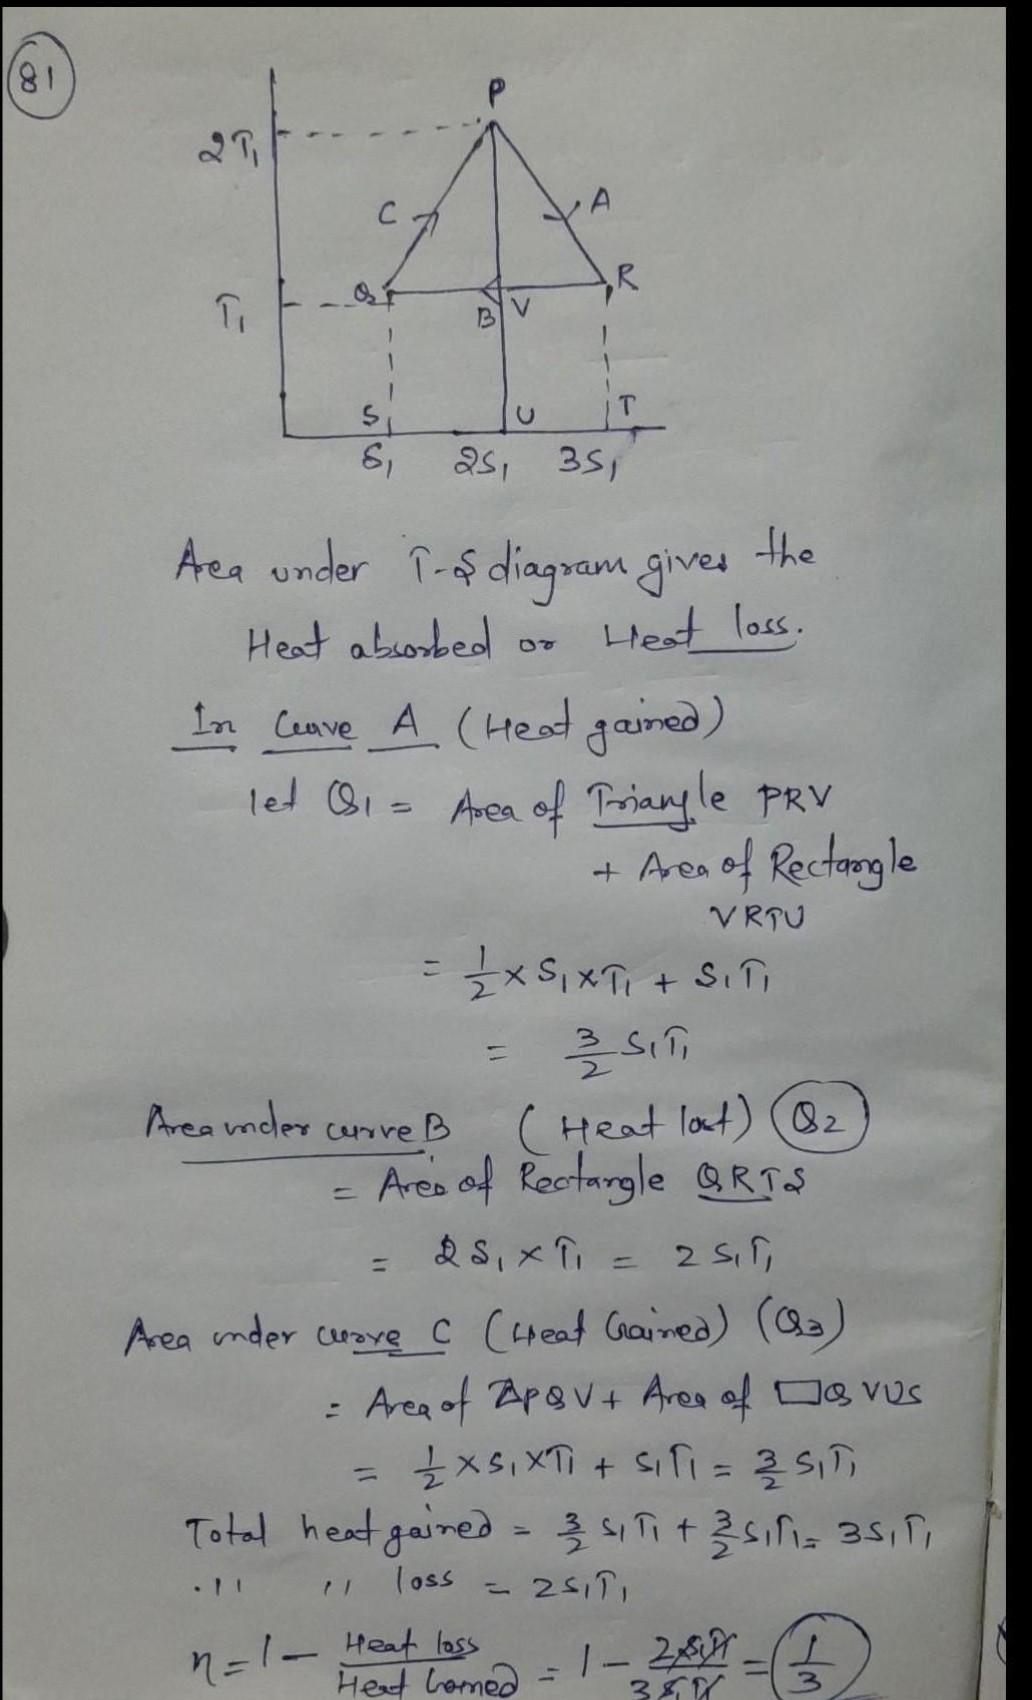 81
P
2T₁
C
A
Q
R
T₁
B V
S U T
S₁ 2S₁ 3S₁
Area under T-S diagram gives the
Heat absorbed or Heat loss.
In Curve A (Heat gained)
let Q1 = Area of Triangle PRV
+ Area of Rectangle
VRTU
= 1/2 × S₁ × T₁ + S₁T₁
= 3/2 S₁T₁
Area under curve B (Heat lost) Q2
= Area of Rectangle QRTS
= 2S₁ × T₁ = 2S₁T₁
Area under curve C (Heat Gained) (Q3)
= Area of ΔPQV + Area of □QVUS
= 1/2 × S₁ × T₁ + S₁T₁ = 3/2 S₁T₁
Total heat gained = 3/2 S₁T₁ + 3/2 S₁T₁ = 3S₁T₁
." " loss = 2S₁T₁
η = 1 - Heat loss/Heat Gained = 1 - 2S₁T₁/3S₁T₁ = 1/3